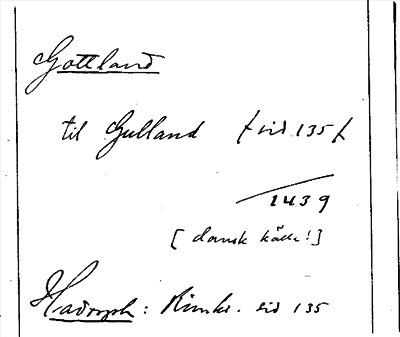 Gottland
til Gulland (sid 135)
1439
[dansk källa!]
Hadorph: Rimkr. sid 135